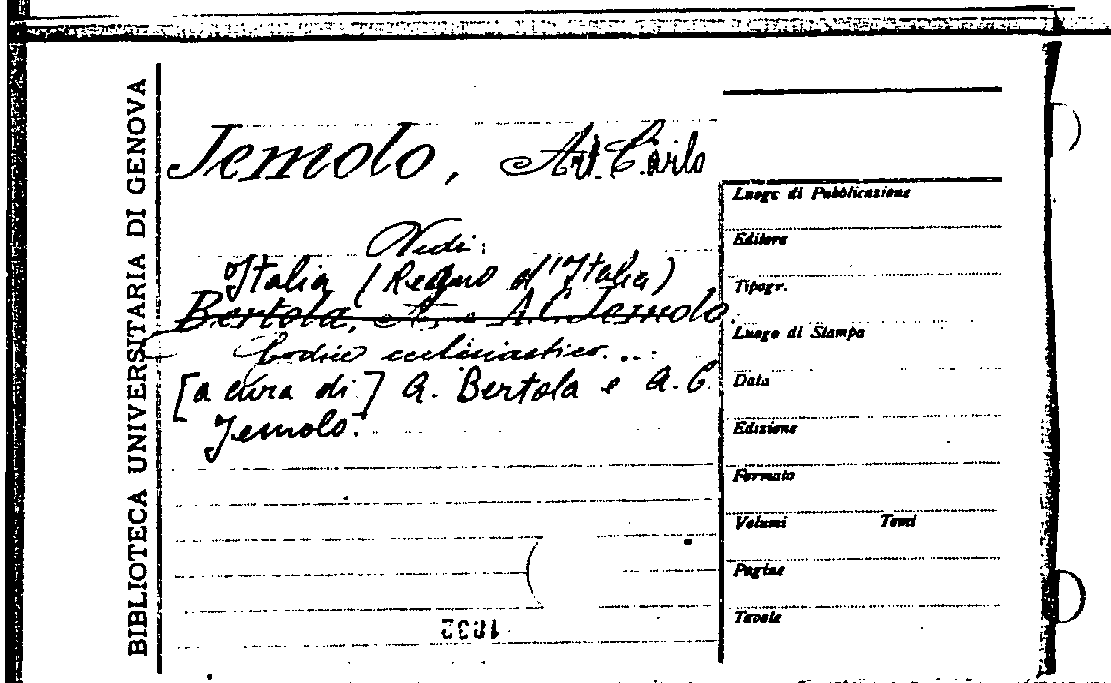 BIBLIOTECA UNIVERSITARIA DI GENOVA
Jemolo, Art. Carlo
Vedi:
Italia (Regno d'Italia)
Bertola, A. e A.C. Jemolo.
Codice ecclesiastico...
[a cura di] A. Bertola e A. C.
Jemolo.
Luogo di Pubblicazione
Editore
Tipogr.
Luogo di Stampa
Data
Edizione
Formato
Volumi Tomi
Pagine
Tavole